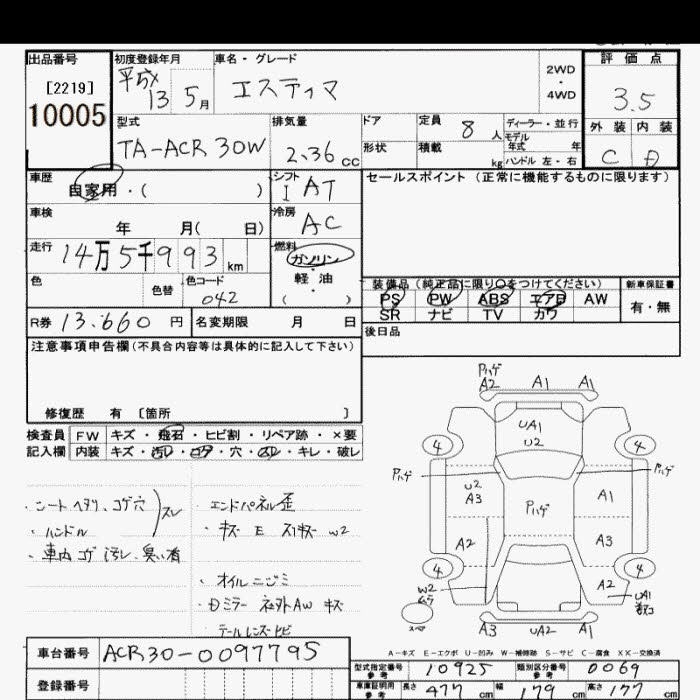 出品番号 初度登録年月 車名・グレード 2WD・4WD 評価点
[2219] 平成 13年 5月 エスティマ 3.5
10005 外装 内装
型式 排気量 ドア 定員 8人 ディーラー・並行
TA-ACR30W 2.36cc 形状 積載 kg モデル年式 年 ハンドル 左・右 C D
車歴 自家用・( ) シフト I AT セールスポイント (正常に機能するものに限ります)
車検 年 月( 日) 冷房 AC
走行 14万5千993km 燃料 ガソリン・軽油・( )
色 色替 色コード 042 装備品(純正品に限り○をつけてください) 新車保証書
PS PW ABS エアB AW 有・無
R券 13.660円 名変期限 月 日 SR ナビ TV カワ
後日品
注意事項申告欄(不具合内容等は具体的に記入して下さい)
修復歴 有 〔箇所 〕
検査員 FW キズ・飛石・ヒビ割・リペア跡・×要
記入欄 内装 キズ・汚レ・コゲ・穴・スレ・キレ・破レ
・シートヘタリ、コゲ穴 スレ
・ハンドル
・車内コゲ汚レ、臭い有
・エンドパネル歪
・キズ E スリキズ W2
・オイルニジミ
・Dミラー 社外AW キズ
テールレンズヒビ
Pハゲ
A2 A1 A1
UA1
U2
4 4
Pハゲ Pハゲ
U2
A3 Pハゲ A1
A2 A3
4 4
W2 A2 UA1
スペア
A3 UA2 A1
A-キズ E-エクボ U-凹み W-補修跡 S-サビ C-腐食 XX-交換済
車台番号 ACR30-0097795
型式指定番号 参考 10925 類別区分番号 参考 0069
登録番号
車庫証明用 参考 長さ 477cm 幅 179cm 高さ 177cm